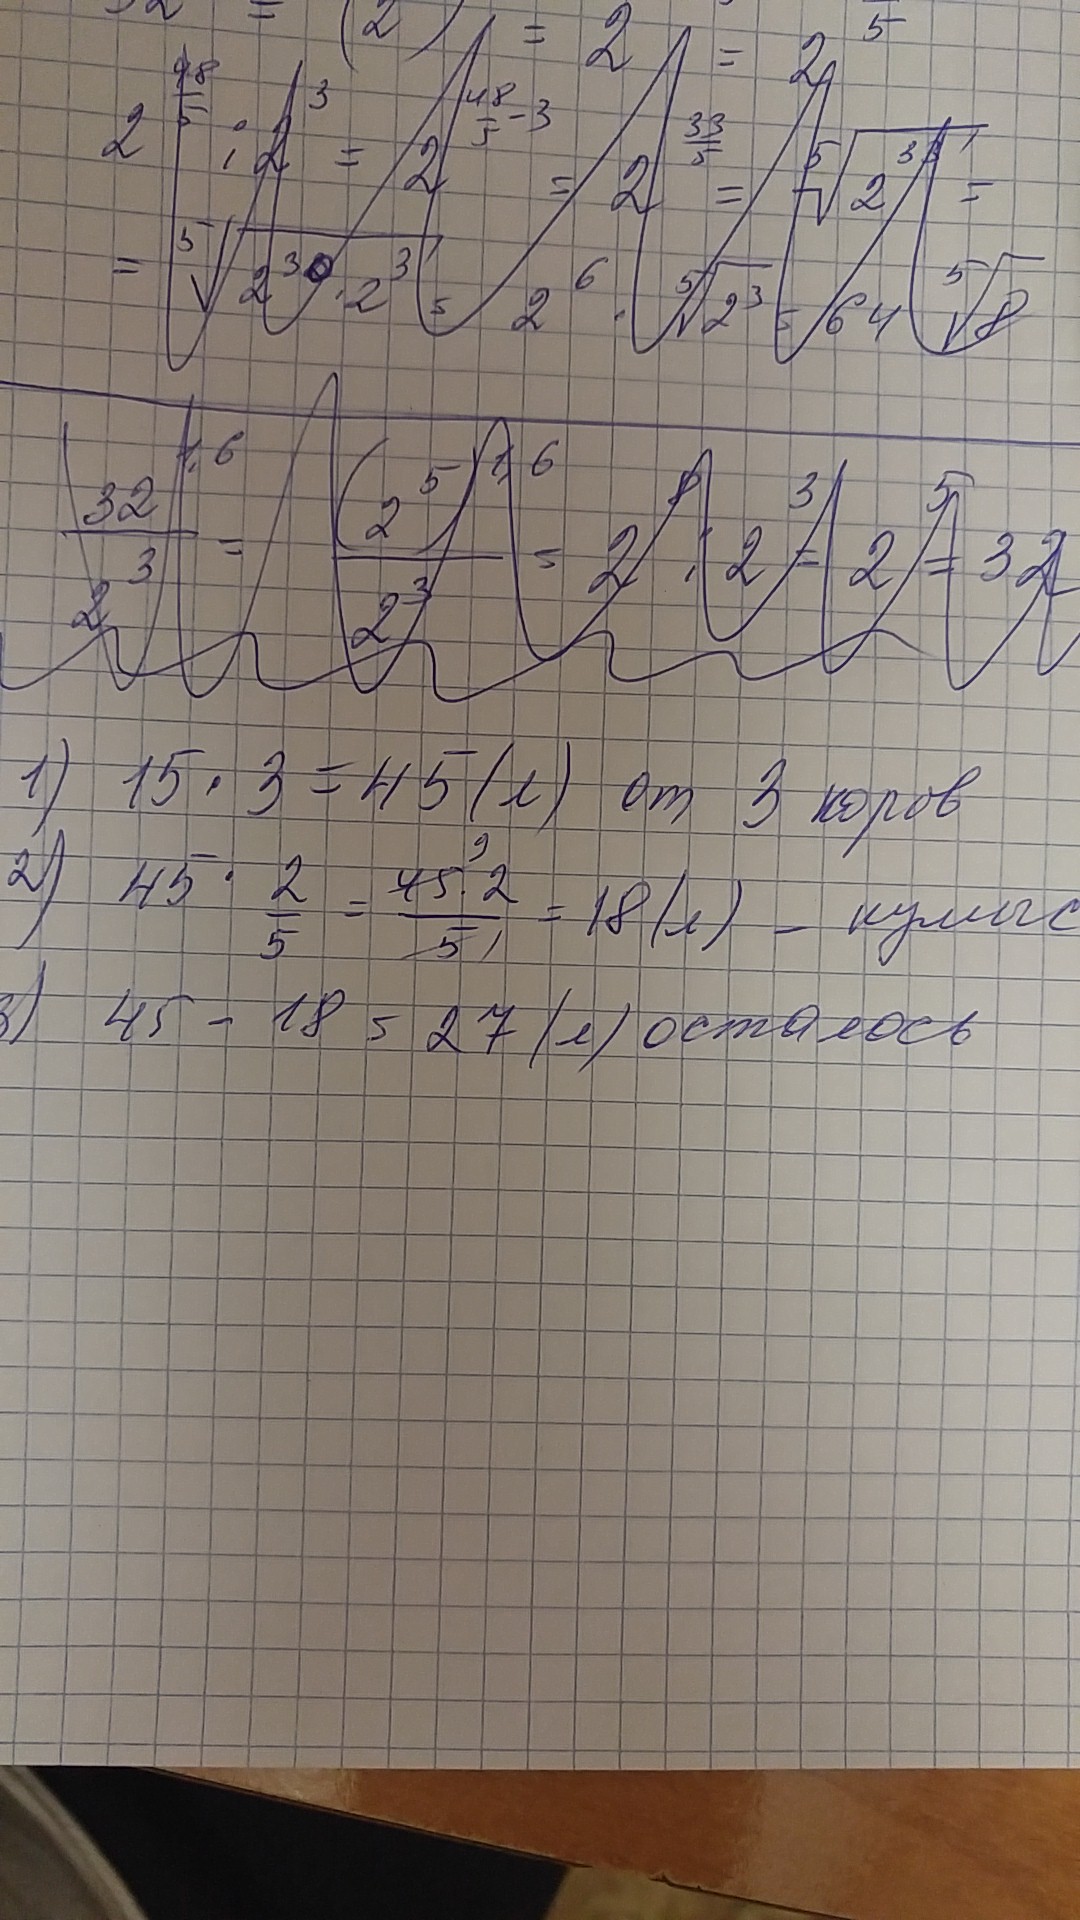 32 = (2 ) = 2 = 2 5
2^(48/5) : 2^3 = 2^(48/5 - 3) = 2^(33/5) = ⁵√(2^33) =
= ⁵√(2^30 · 2^3) = 2^6 · ⁵√(2^3) = 64 ⁵√8
32^1,6 / 2^3 = (2^5)^1,6 / 2^3 = 2^8 : 2^3 = 2^5 = 32
1) 15 · 3 = 45 (л) от 3 коров
2) 45 · 2/5 = 45 9 · 2 / 5 1 = 18 (л) – кумыс
3) 45 - 18 = 27 (л) осталось